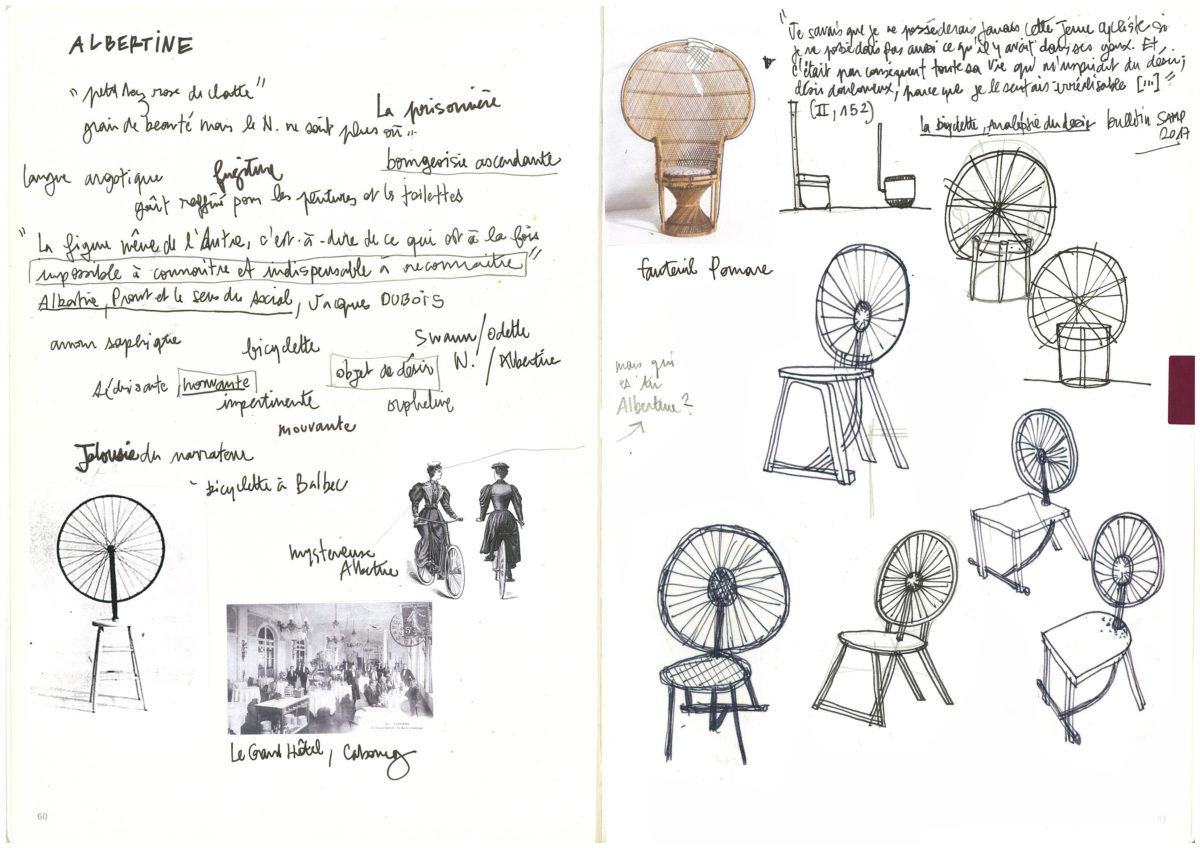 ALBERTINE
"petit nez rose de chatte"
grain de beauté mais le N. ne sait plus où...
La prisonnière
bourgeoisie ascendante
langue argotique
fugitive
goût raffiné pour les peintures et les toilettes
"La figure même de l'Autre, c'est-à-dire de ce qui est à la fois
impossible à connaître et indispensable à reconnaître"
Albertine, Proust et le sens du social, Jacques DUBOIS
amour saphique
bicyclette
Swann/Odette
N./Albertine
séduisante,
objet de désir
impertinente
orpheline
mouvante
Jalousie du narrateur
bicyclette à Balbec
mystérieuse
Albertine
Le Grand Hôtel, Cabourg
60
"Je savais que je ne posséderais jamais cette jeune cycliste si
je ne possédais pas aussi ce qu'il y avait dans ses yeux. Et
c'était par conséquent toute sa vie qui m'inspirait du désir;
désir douloureux, parce que je le sentais irréalisable [...]"
(II, 152)
la bicyclette, du désir bulletin
2017
fauteuil Pomare
mais qui
es tu
Albertine?